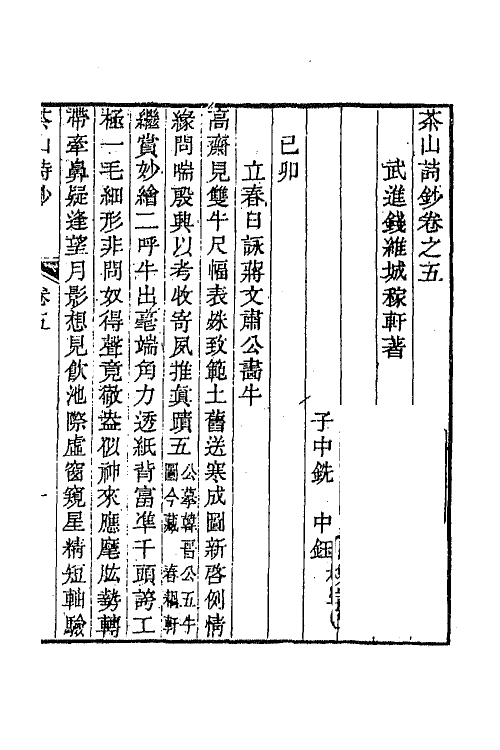 茶山詩鈔卷之五
武進錢維城稼軒著
子中銑 中鈺
己卯
立春日詠蔣文肅公畵牛
高齋見雙牛尺幅表姝致範土舊送寒成圖新啓例情
緣問喘殷興以考收寄夙推眞蹟五公摹韓晋公五牛圖今藏春耦軒
繼賞妙繪二呼牛出毫端角力透紙背富準千頭誇工
極一毛細形非問奴得聲竟徹盎似神來應麾肱勢轉
帶牽鼻疑逢望月影想見飲池際虛窗窺星精短軸驗
茶山詩鈔 卷五